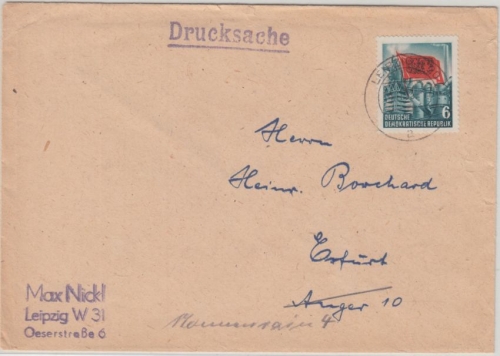 Drucksache
DEUTSCHE
DEMOKRATISCHE REPUBLIK
6
Herrn
Heinr. Borchard
Erfurt
Anger 10
4
Max Nickl
Leipzig W 31
Oeserstraße 6